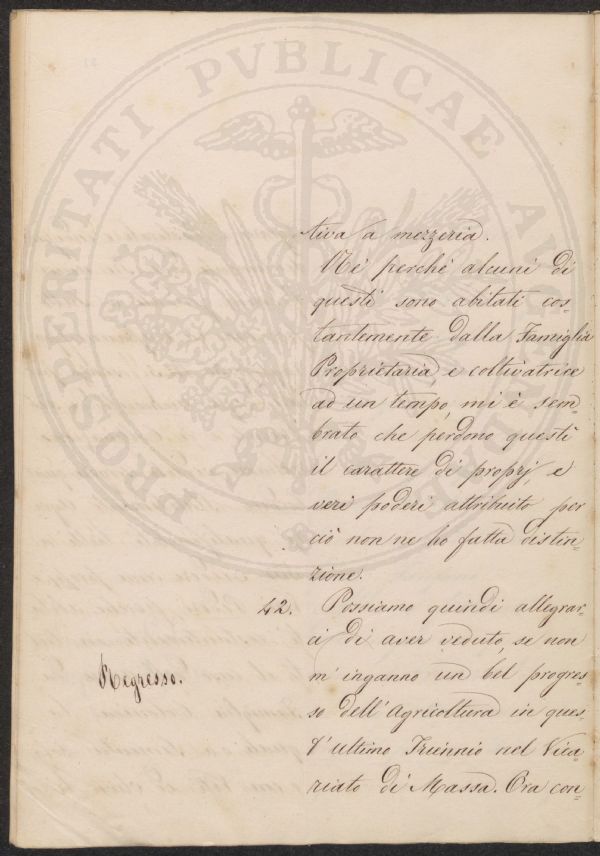 PROSPERITATI PVBLICAE AVGENDAE
tiva a mezzeria.
Nè perchè alcuni di
questi sono abitati cos-
tantemente dalla Famiglia
Proprietaria, e coltivatrice
ad un tempo, mi è sem-
brato che perdono questi
il carattere di proprj, e
veri poderi attribuito, per
ciò non ne ho fatta distin-
zione.
42. Possiamo quindi allegrar-
ci di aver veduto, se non
m'inganno un bel progres-
so dell'Agricoltura in ques-
t'ultimo Triennio nel Vica-
riato di Massa. Ora con-
Regresso.